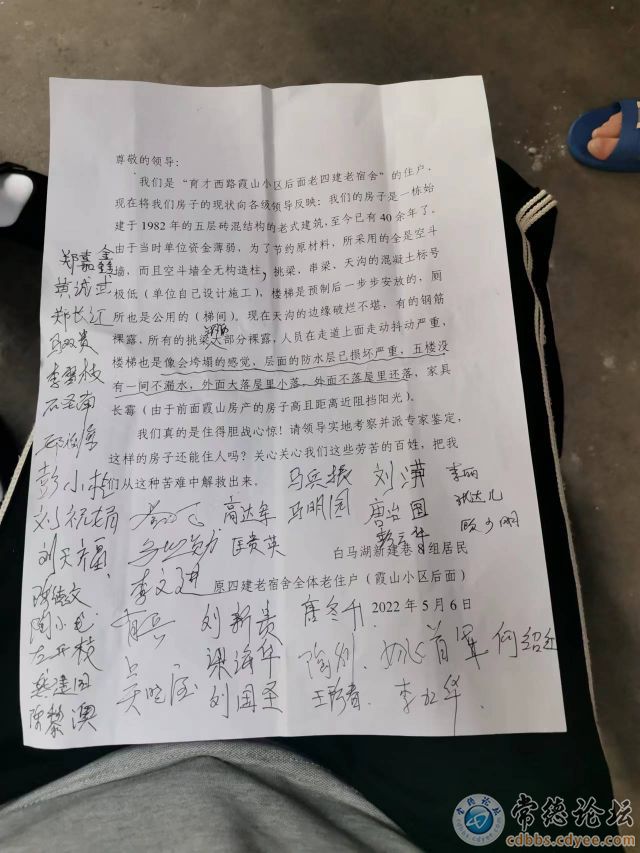 尊敬的领导:
我们是“育才西路霞山小区后面老四建老宿舍”的住户,
现在将我们房子的现状向各级领导反映:我们的房子是一栋始
建于1982年的五层砖混结构的老式建筑,至今已有40余年了。
由于当时单位资金薄弱,为了节约原材料,所采用的全是空斗
墙,而且空斗墙全无构造柱,挑梁、串梁、天沟的混凝土标号
极低(单位自己设计施工),楼梯是预制后一步步安放的,厕
所也是公用的(梯间)。现在天沟的边缘破烂不堪,有的钢筋
裸露,所有的挑梁大部分裸露,人员在走道上面走动抖动严重,
楼梯也是像会垮塌的感觉,层面的防水层已损坏严重,五楼没
有一间不漏水,外面大落屋里小落,外面不落屋里还落,家具
长霉(由于前面霞山房产的房子高且距离近阻挡阳光)。
我们真的是住得胆战心惊!请领导实地考察并派专家鉴定,
这样的房子还能住人吗?关心关心我们这些劳苦的百姓,把我
们从这种苦难中解救出来。
郑嘉鑫
黄诚武
郑长江
石圣南
彭小桂
马兵振
李丽
刘祝娟
高达年
马明国
唐治国
刘天福
匡贵英
白马湖新建巷8组居民
陈德文
李文进
原四建老宿舍全体老住户(霞山小区后面)
陶小毛
刘新贵
唐冬千
2022年5月6日
梁海华
何绍廷
刘国圣
李红华
陈黎澳
常德论坛
常德论坛
cdbbs.cdyee.com